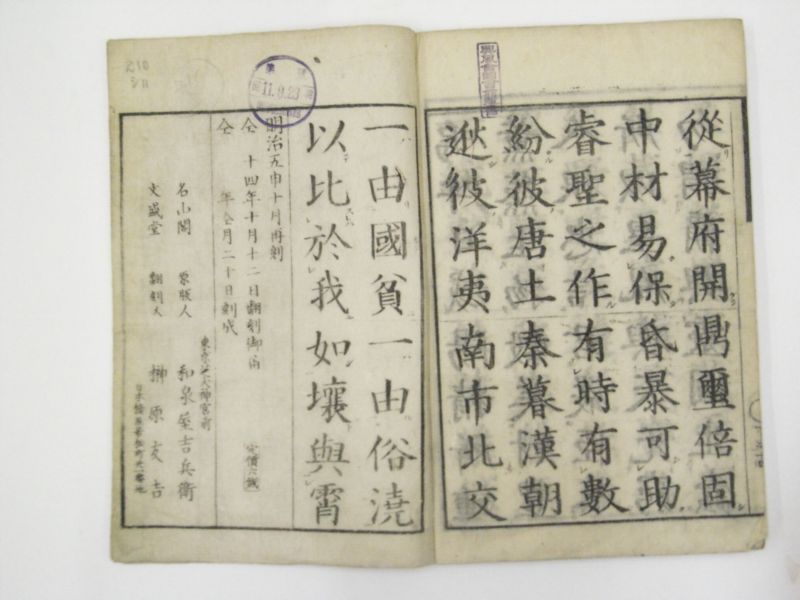 從幕府開鼎璽倍固
中材易保昏暴可助
睿聖之作有時有數
紛彼唐土秦暮漢朝
逖彼洋夷南市北交
一由國貧一由俗澆
以比於我如壤與霄
明治五申十月再刻
仝十四年十月十二日翻刻御届
仝年仝月二十日刻成
名山閣
東京芝大神宮前
和泉屋吉兵衛
文盛堂 翻刻人 榊原友吉
11.9.23
210